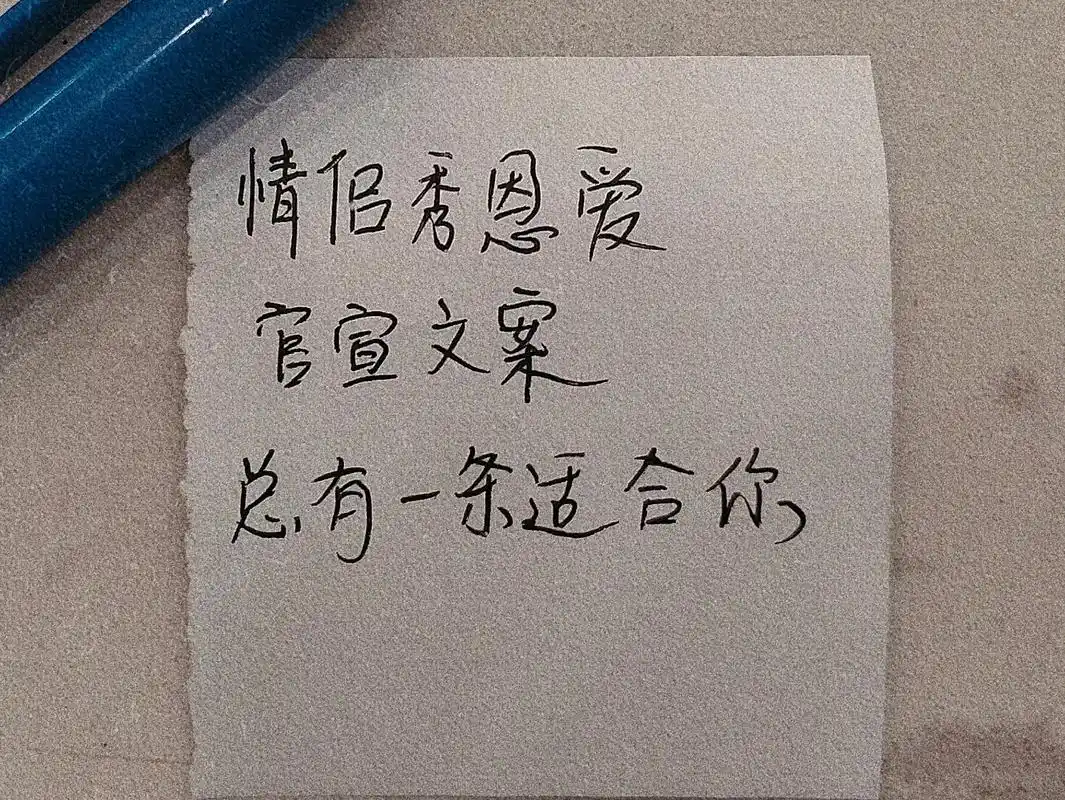 情侣秀恩爱
官宣文案
总有一条适合你